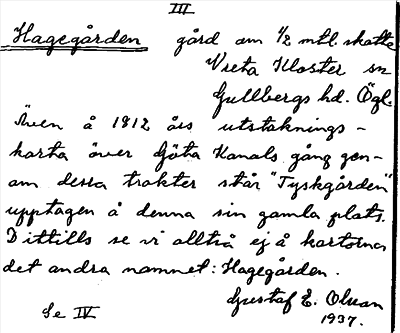 III
Hagegården gård om 1/2 mtl skatte
Vreta Kloster sn
Gullbergs hd. Ögl.
Även å 1812 års utstaknings-
karta över Göta Kanals gång gen-
om dessa trakter står "Tyskgården"
upptagen å denna sin gamla plats.
Dittills se vi alltså ej å kartorna
det andra namnet: Hagegården.
Gustaf E. Olsson
1937.
Se IV